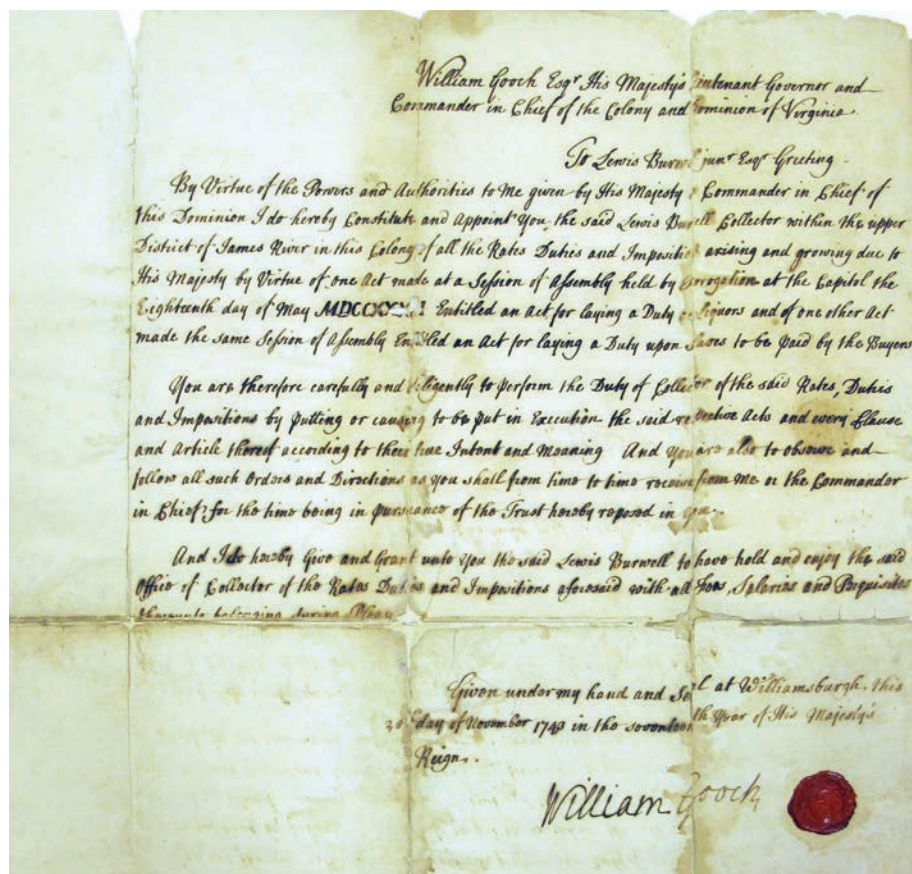 William Gooch Esqr. His Majesty's Lieutenant Governor and
Commander in Chief of the Colony and Dominion of Virginia
To Lewis Burwell junr. Esqr. Greeting
By Virtue of the Powers and Authorities to Me given by His Majesty Commander in Chief of
this Dominion I do hereby Constitute and Appoint You, the said Lewis Burwell Collector within the upper
District of James River in this Colony of all the Rates Duties and Impositions arising and growing due to
His Majesty by Virtue of one Act made at a Session of Assembly held by prorogation at the Capitol the
Eighteenth day of May Entitled an Act for laying a Duty on Liquors and of one other Act
made the same Session of Assembly Entitled an Act for laying a Duty upon Slaves to be paid by the Buyers
You are therefore carefully and diligently to perform the Duty of Collector of the said Rates, Duties
and Impositions by putting or causing to be put in Execution the said respective Acts and every Clause
and Article thereof according to their true Intent and Meaning And you are also to observe and
follow all such Orders and Directions as you shall from time to time receive from Me or the Commander
in Chief for the time being in pursuance of the Trust hereby reposed in you.
And I do hereby Give and Grant unto You the said Lewis Burwell to have hold and enjoy the said
Office of Collector of the Rates Duties and Impositions aforesaid with all Fees, Salaries and Perquisites
thereunto belonging during
Given under my hand and Seal at Williamsburgh, this
day of November 1743 in the seventeenth Year of His Majesty's
Reign.
William Gooch